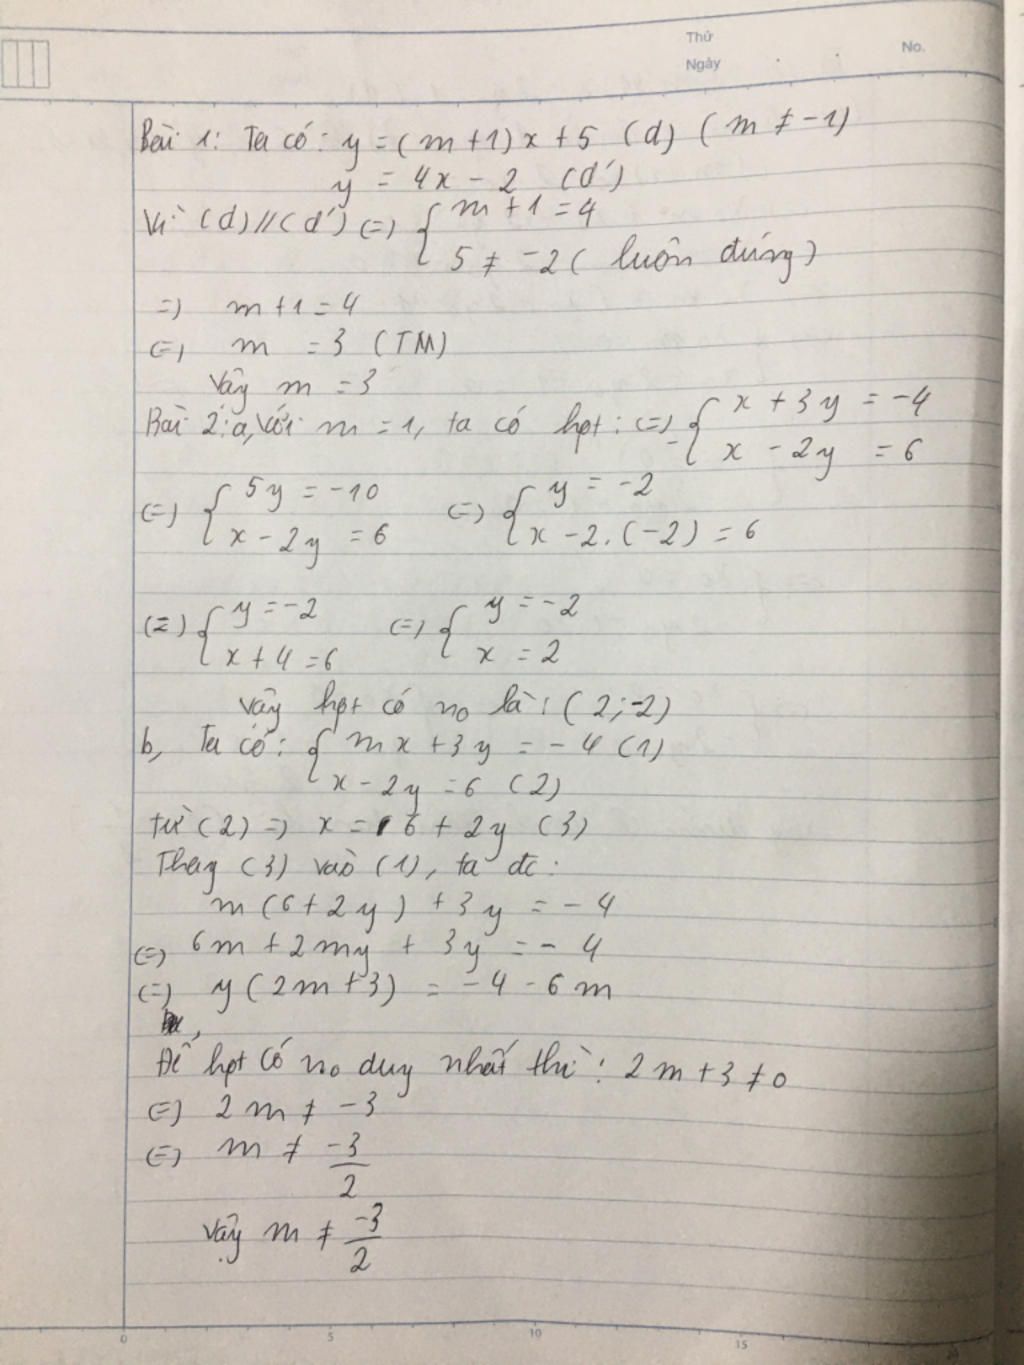 Thứ
Ngày
No.
Bài 1: Ta có: y = (m+1)x+5 (d) (m ≠ -1)
y = 4x - 2 (d')
Vì (d)//(d') (=) { m+1 = 4
5 ≠ -2 ( luôn đúng)
=) m+1 = 4
(=) m = 3 (TM)
Vậy m = 3
Bài 2: a, Với m = 1, ta có hpt: (=) { x + 3y = -4
x - 2y = 6
(=) { 5y = -10 (=) { y = -2
x - 2y = 6 x - 2.(-2) = 6
(=) { y = -2 (=) { y = -2
x + 4 = 6 x = 2
Vậy hpt có no là: (2;-2)
b, Ta có: { mx + 3y = -4 (1)
x - 2y = 6 (2)
từ (2) =) x = 6 + 2y (3)
Thay (3) vào (1), ta đc:
m(6+2y) + 3y = -4
(=) 6m + 2my + 3y = -4
(=) y(2m+3) = -4 - 6m
Để hpt có no duy nhất thì: 2m+3 ≠ 0
(=) 2m ≠ -3
(=) m ≠ -3/2
Vậy m ≠ -3/2
0 5 10 15